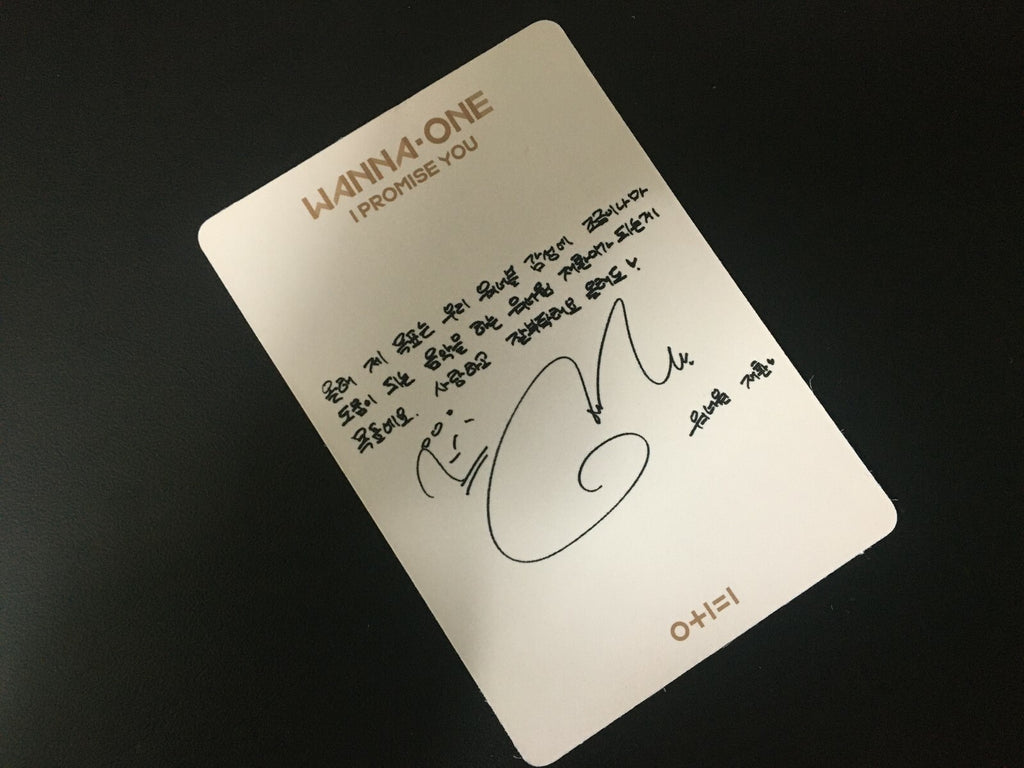 WANNA·ONE
I PROMISE YOU
올해 제 목표는 우리 워너블 감성에 조금이나마
도움이 되는 음악을 하는 워너원 재환이가 되는게
목표에요. 사랑하고 잘부탁해요 올해도♥
워너원 재환♥
0+1=1